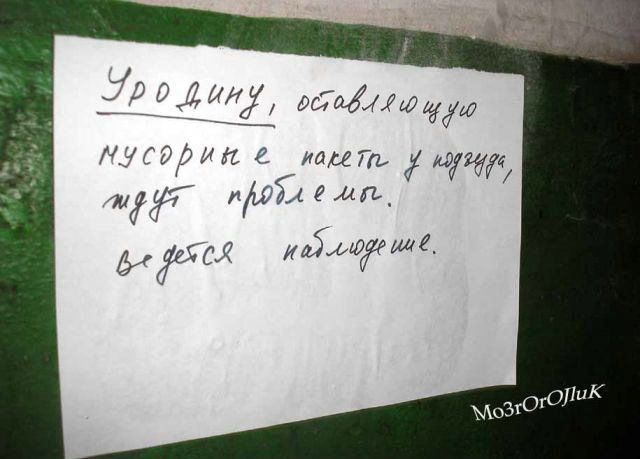 Уродину, оставляющую
мусорные пакеты у подъезда,
ждут проблемы.
ведется наблюдение.
Mo3rOrOJIuK